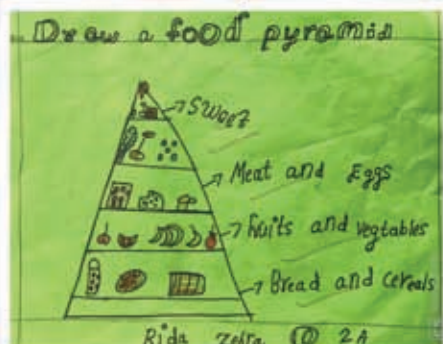 Draw a food pyramid
Sweez
Meat and Eggs
Fruits and vegtables
Bread and cereals
Rida Zehra 2A